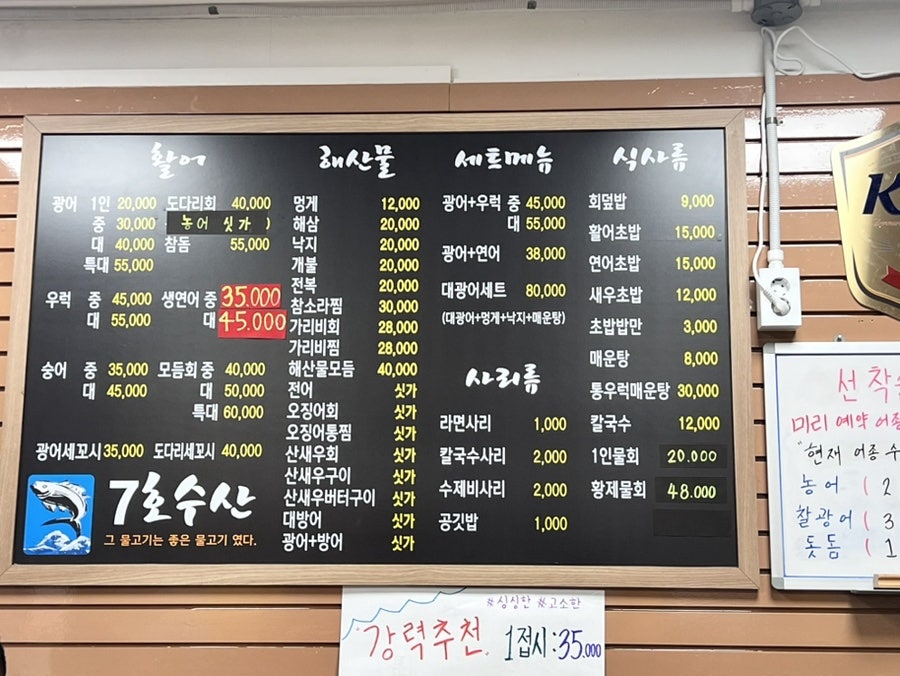 활어
광어 1인 20,000
중 30,000
대 40,000
특대 55,000
도다리회 40,000
농어 싯가 )
참돔 55,000
우럭 중 45,000
대 55,000
생연어 중 35.000
대 45.000
숭어 중 35,000
대 45,000
모듬회 중 40,000
대 50,000
특대 60,000
광어세꼬시 35,000
도다리세꼬시 40,000
7호수산
그 물고기는 좋은 물고기 였다.
해산물
멍게 12,000
해삼 20,000
낙지 20,000
개불 20,000
전복 20,000
참소라찜 30,000
가리비회 28,000
가리비찜 28,000
해산물모듬 40,000
전어 싯가
오징어회 싯가
오징어통찜 싯가
산새우회 싯가
산새우구이 싯가
산새우버터구이 싯가
대방어 싯가
광어+방어 싯가
세트메뉴
광어+우럭 중 45,000
대 55,000
광어+연어 38,000
대광어세트 80,000
(대광어+멍게+낙지+매운탕)
사리류
라면사리 1,000
칼국수사리 2,000
수제비사리 2,000
공깃밥 1,000
식사류
회덮밥 9,000
활어초밥 15,000
연어초밥 15,000
새우초밥 12,000
초밥밥만 3,000
매운탕 8,000
통우럭매운탕 30,000
칼국수 12,000
1인물회 20.000
황제물회 48.000
#싱싱한 #고소한
강력추천. 1접시:35.000
K
선착
미리 예약 어종
"현재 어종 수
농어 ( 2
찰광어 ( 3
돗돔 ( 1